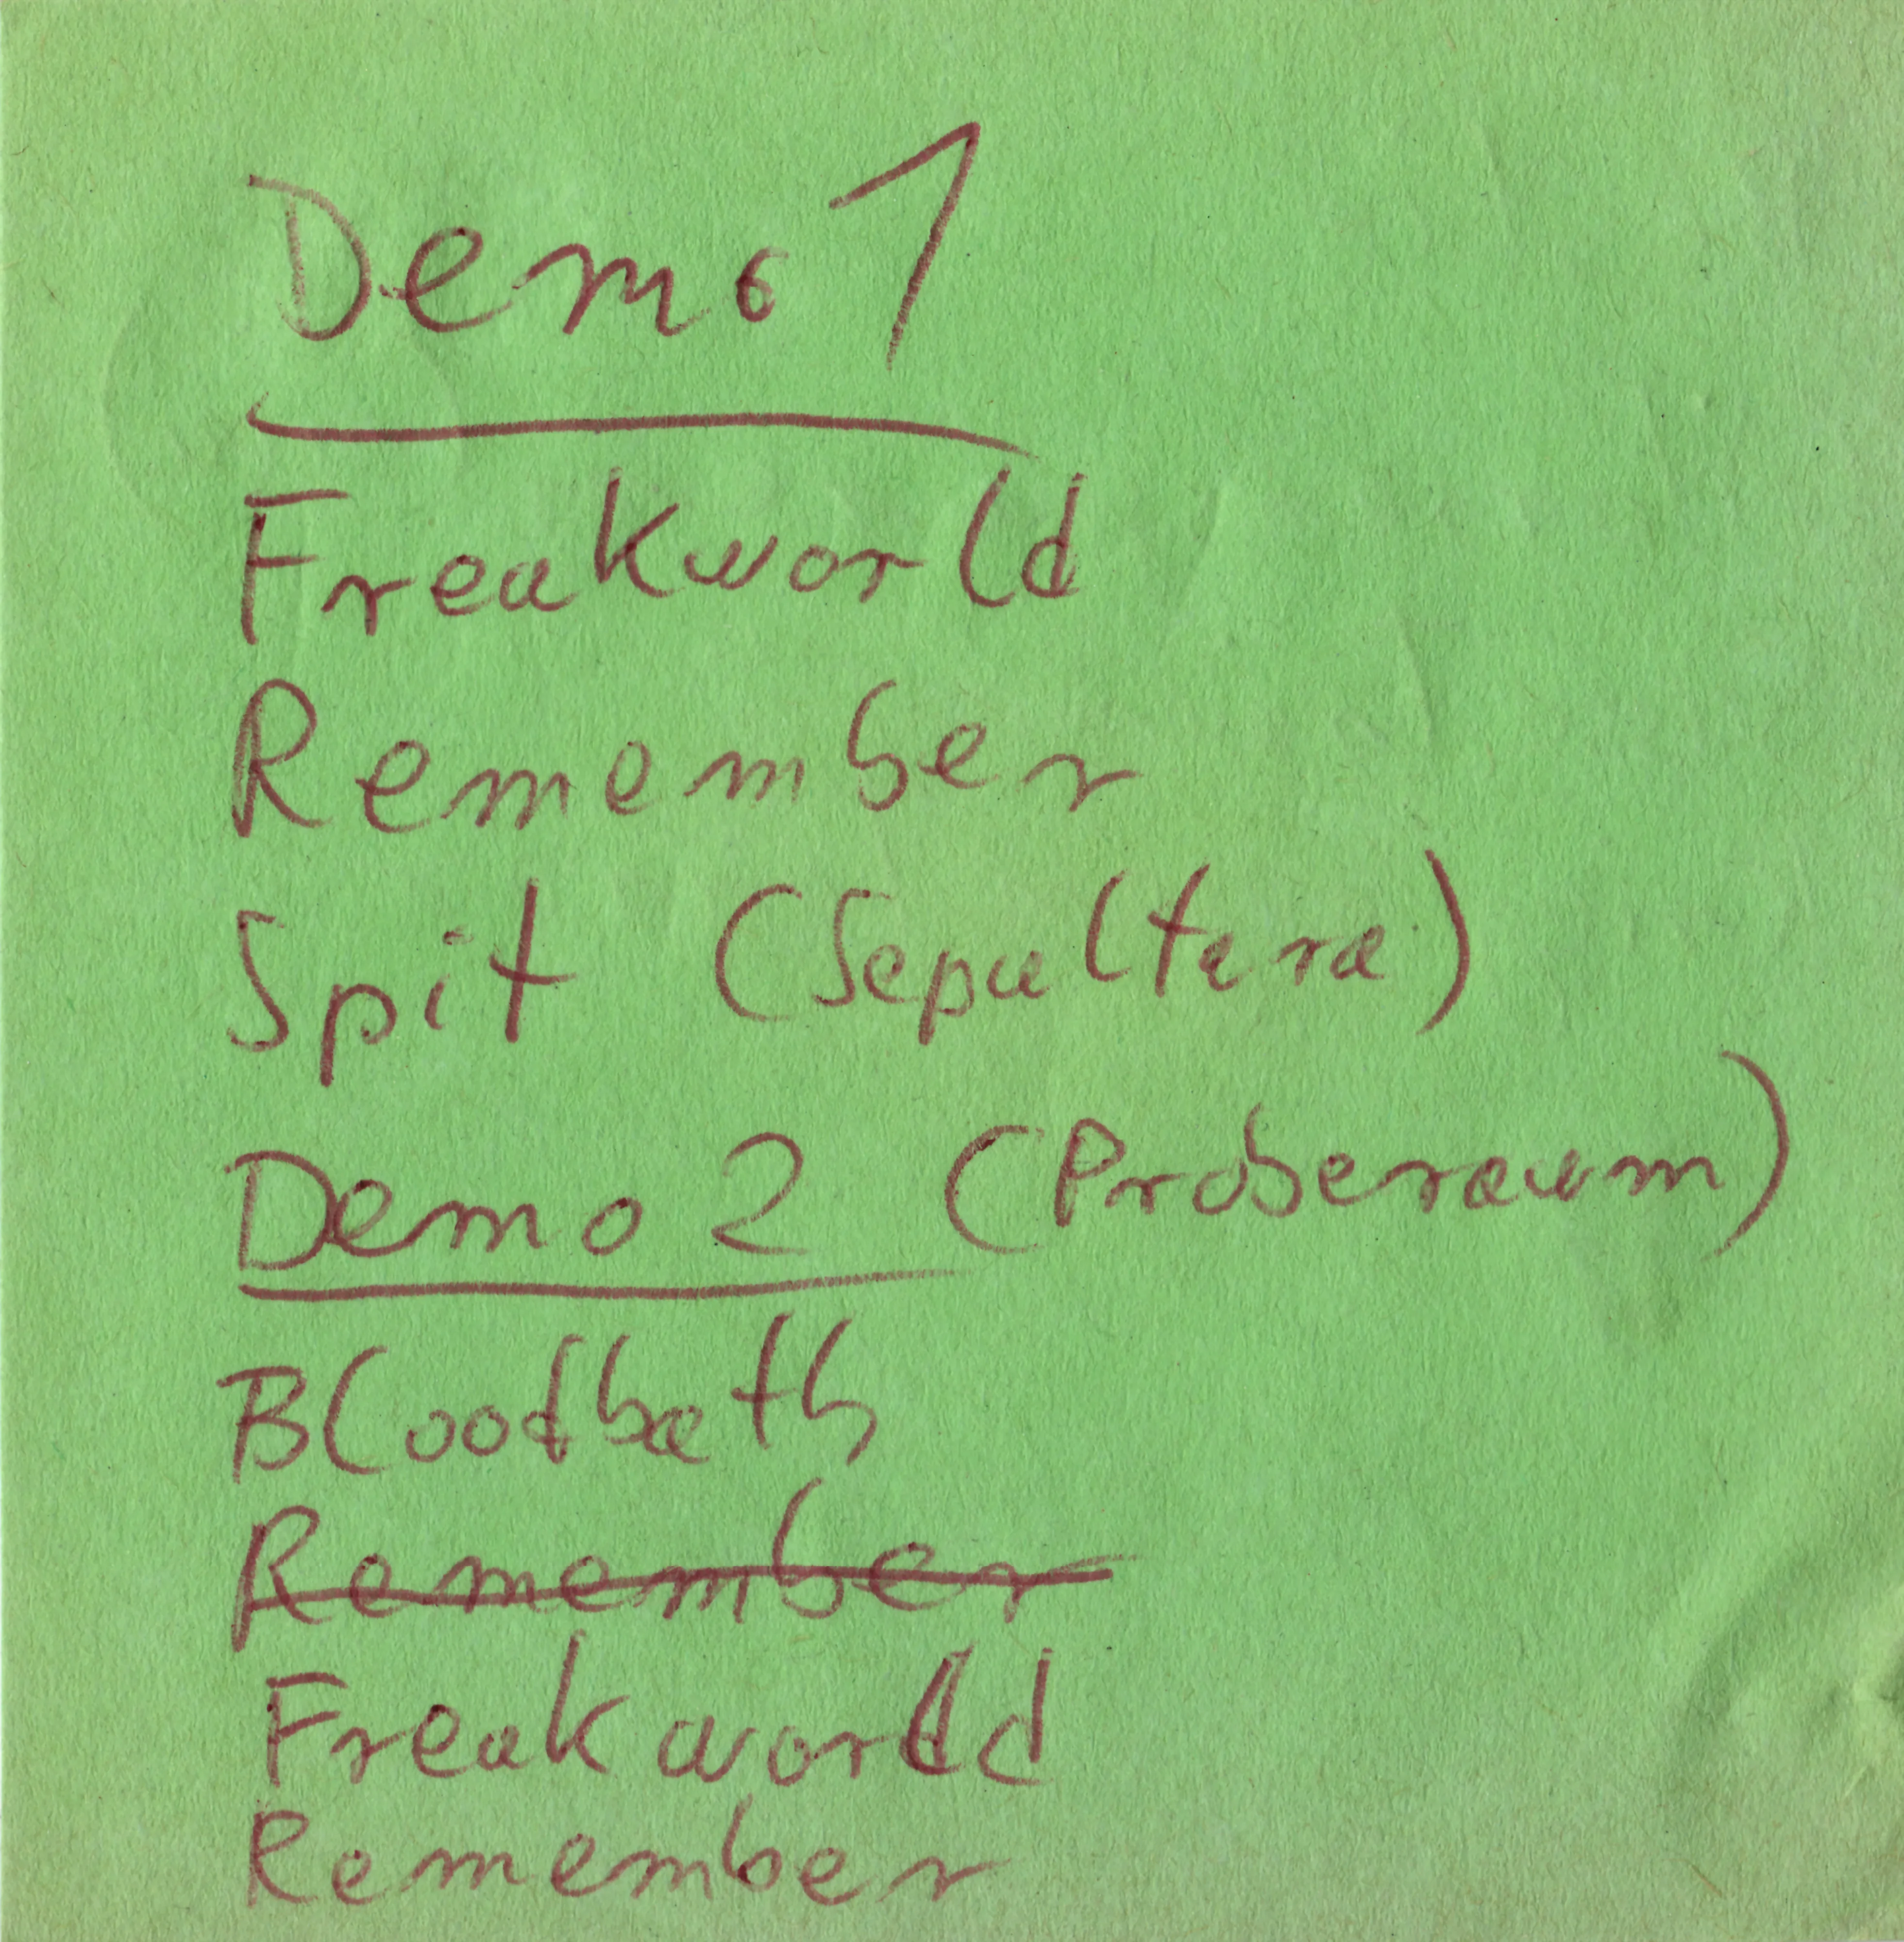 Demo 1
Freakworld
Remember
Spit (Sepultura)
Demo 2 (Proberaum)
Bloodbath
Remember
Freakworld
Remember